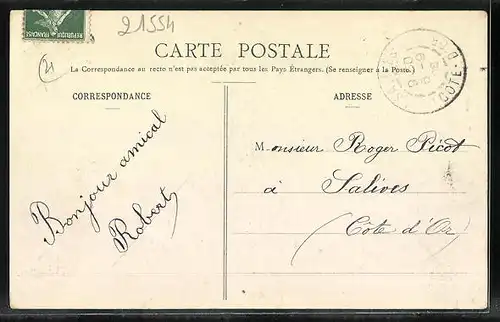 RÉPUBLIQUE FRANÇAISE
21554
21
CARTE POSTALE
La Correspondance au recto n'est pas acceptée par tous les Pays Étrangers. (Se renseigner à la Poste.)
CORRESPONDANCE
ADRESSE
CÔTE D'OR
Bonjour amical
Robert
Monsieur Roger Picot
à Salives
(Côte d'Or)